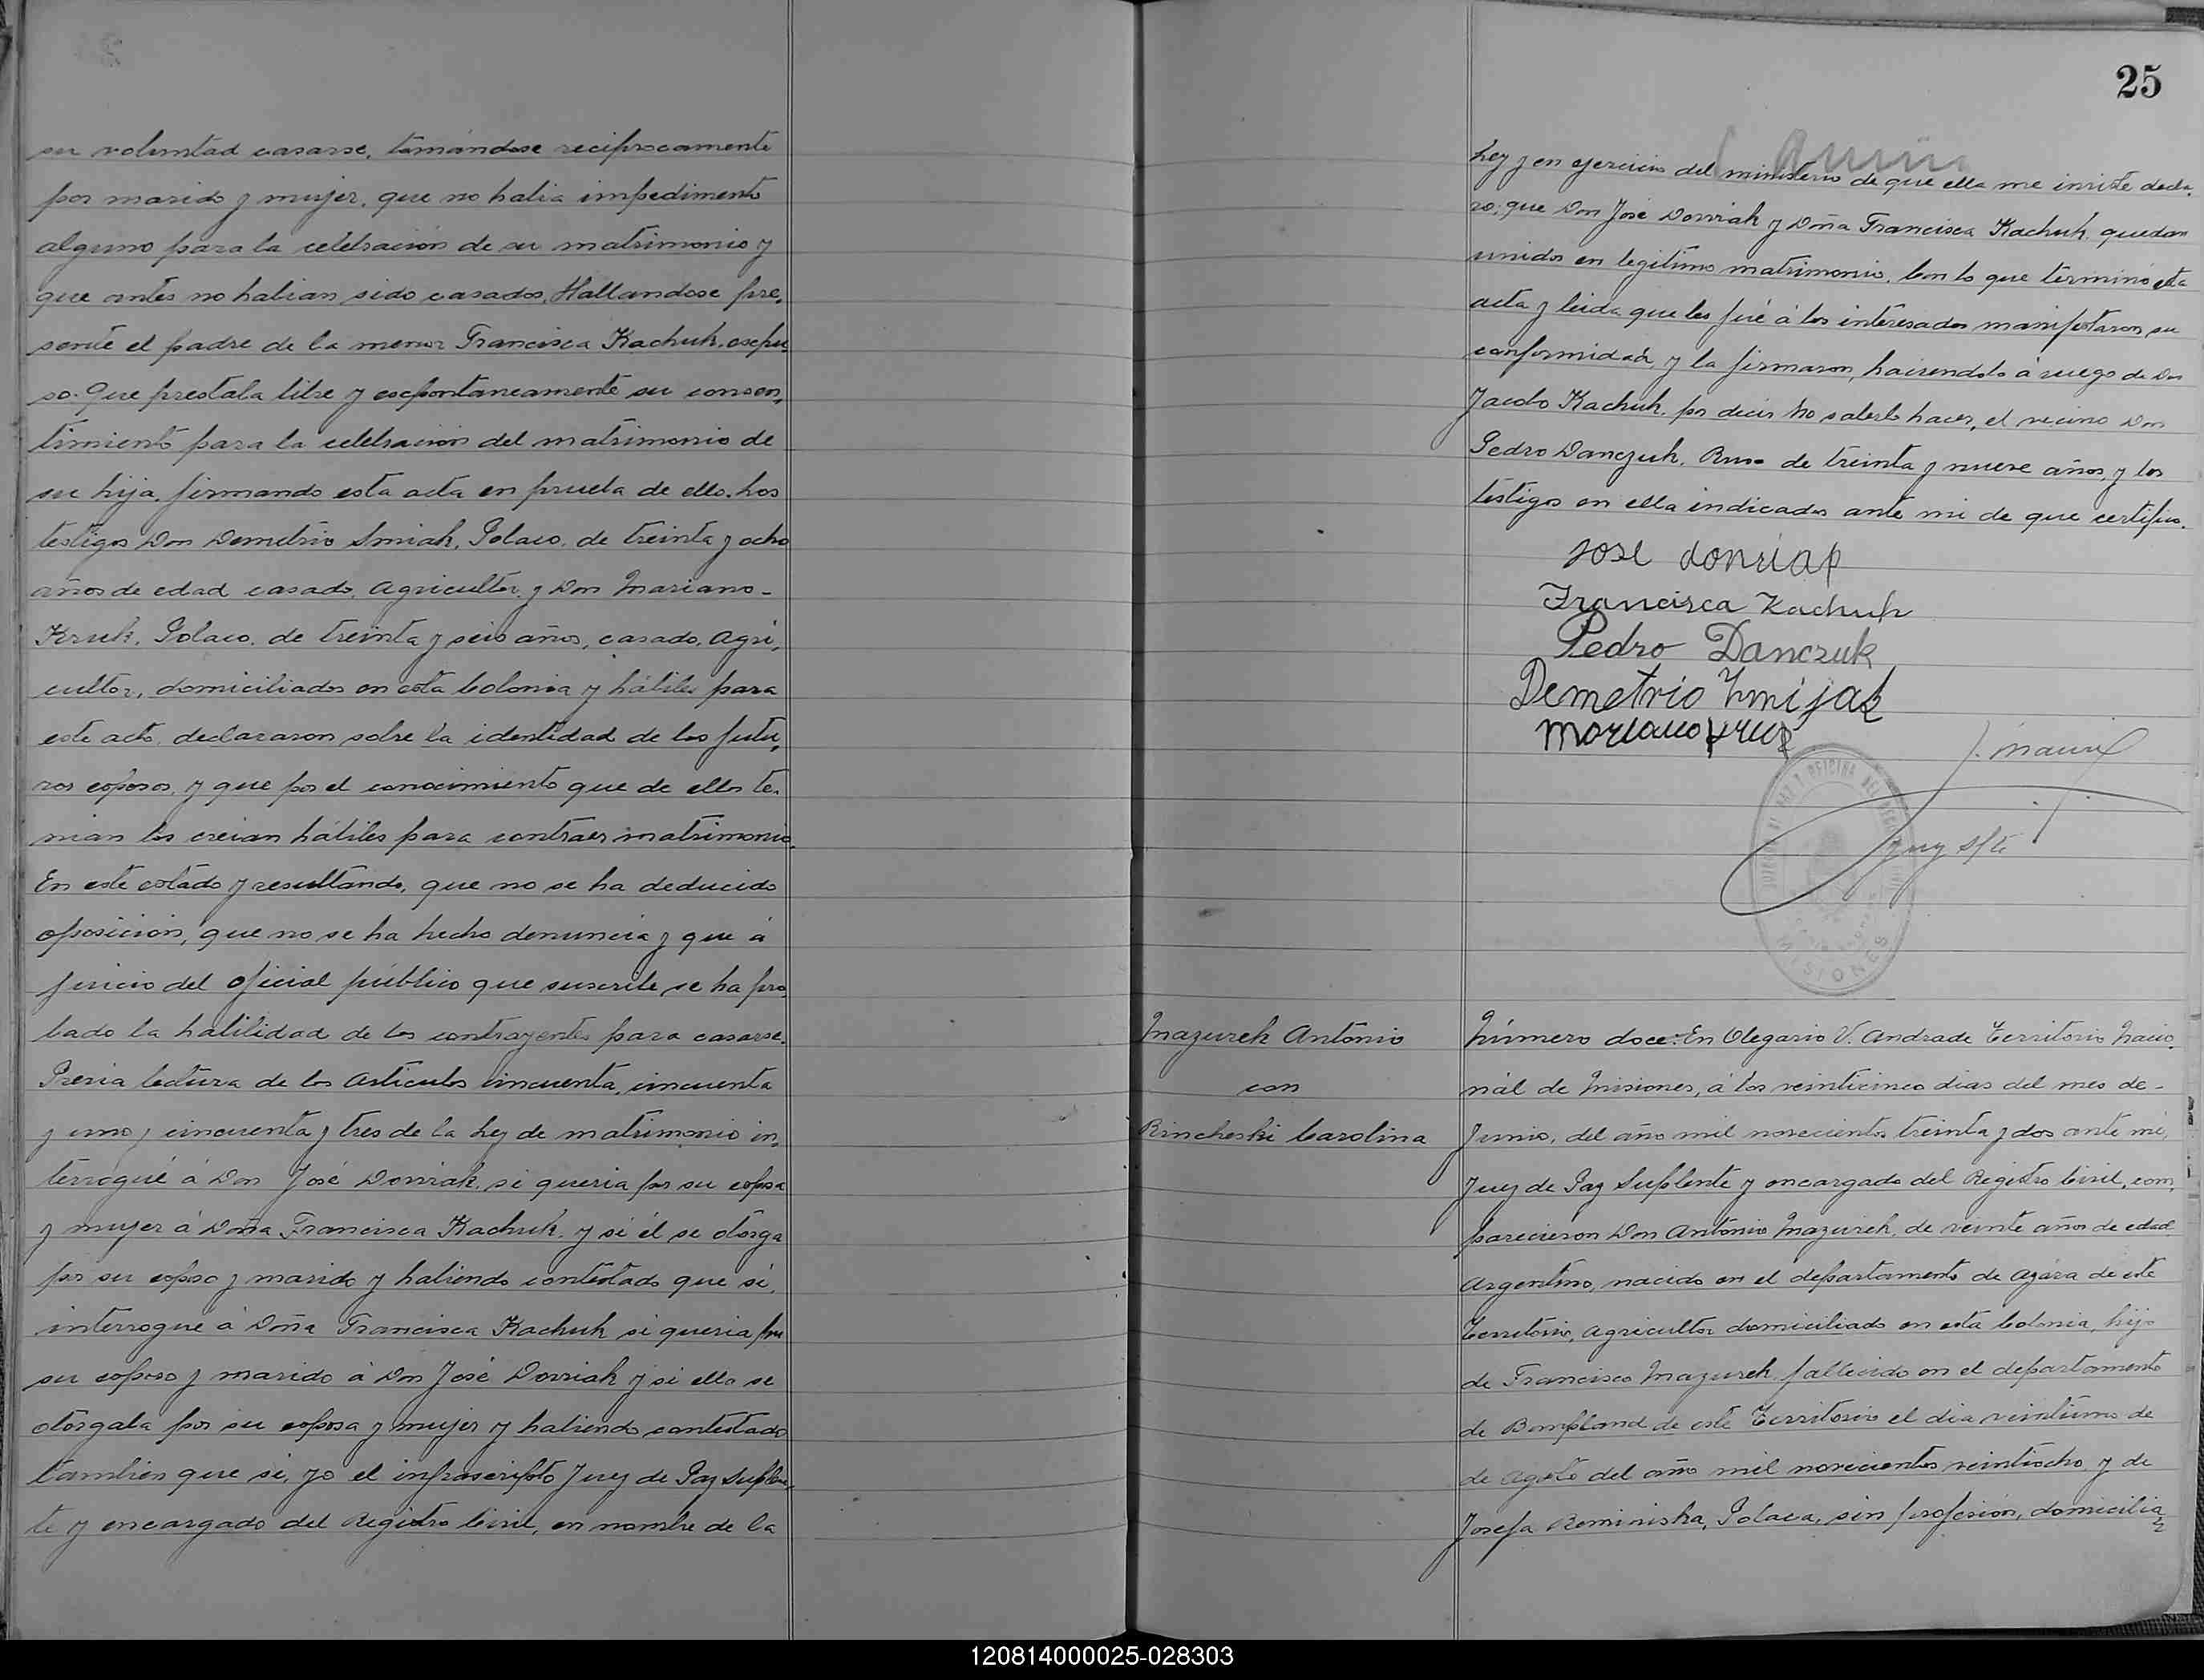 su voluntad casarse, tomándose reciprocamente
por marido y mujer, que no habia impedimento
alguno para la celebración de su matrimonio y
que antes no habian sido casados, Hallandose pre,
sente el padre de la menor Francisca Kachuk, expu,
so: Que prestaba libre y espontaneamente su consen,
timiento para la celebración del matrimonio de
su hija, firmando esta acta en prueba de ello. Los
testigos Don Demetrio Smiak, Polaco, de treinta y ocho
años de edad casado, Agricultor, y Don Mariano-
Kruk, Polaco, de treinta y seis años, casado, Agri,
cultor, domiciliados en esta Colonia y hábiles para
este acto, declararon sobre la identidad de los futu,
ros esposos, y que por el conocimiento que de ellos te,
nian los creian hábiles para contraer matrimonio.
En este estado y resultando, que no se ha deducido
oposición, que no se ha hecho denuncia y que á
juicio del oficial público que suscribe se ha pro,
bado la habilidad de los contrayentes para casarse.
Previa lectura de los Articulos cincuenta, cincuenta
y uno y cincuenta y tres de la Ley de matrimonio in,
terrogué á Don José Dowiak, si queria por su esposa
y mujer á Doña Francisca Kachuk, y si él se otorga
por su esposo y marido y habiendo contestado que si,
interrogué á Doña Francisca Kachuk si queria por
su esposo y marido á Don José Dowiak y si ella se
otorgaba por su esposa y mujer y habiendo contestado
tambien que si, yo el infrascripto Juez de Paz Suplen,
te y encargado del Registro Civil, en nombre de la
25
Ley y en ejercicio del ministerio de que ella me inviste decla,
ro; que Don José Dowiak y Doña Francisca Kachuk, quedan
unidos en legitimo matrimonio. Con lo que terminó esta
acta y leida que les fué á los interesados manifestaron su
conformidad, y la firmaron, haciendolo á ruego de Don
Jacobo Kachuk, por decir no saberlo hacer, el vecino Don
Pedro Danczuk, Ruso de treinta y nueve años, y los
testigos en ella indicados ante mi de que certifico.
Francisca Kachuk
Pedro Danczuk
Demetrio Zmijak
Juez S/te
MISIONES
Mazurek Antonio
con
Rincheski Carolina
Número doce: En Olegario V. Andrade Territorio Nacio,
nál de Misiones, á los veinticinco dias del mes de-
Junio, del año mil novecientos treinta y dos ante mi,
Juez de Paz Suplente y encargado del Registro Civil, com,
parecieron Don Antonio Mazurek, de veinte años de edad
Argentino, nacido en el departamento de Azára de este
Territorio, Agricultor domiciliado en esta Colonia, hijo
de Francisco Mazurek, fallecido en el departamento
de Bompland de este Territorio el dia veintiuno de
de Agosto del año mil novecientos veintiocho, y de
Josefa Reminiska, Polaca, sin profesión, domicilia,
120814000025-028303